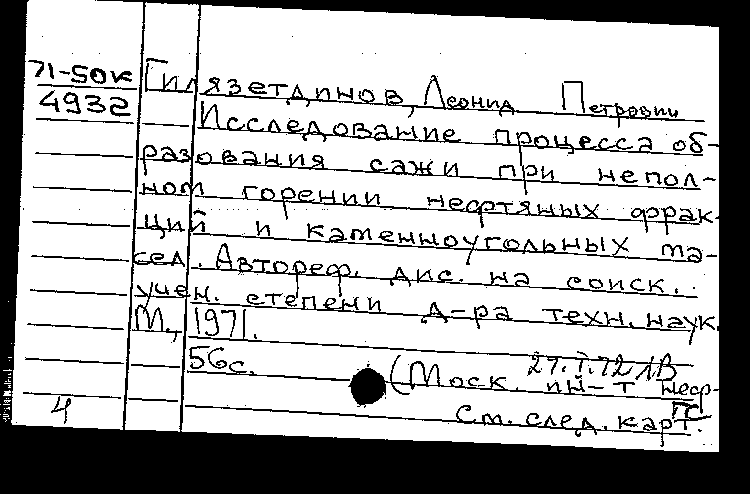 71-50к Гилязетдинов, Леонид Петрович
4932 Исследование процесса об-
разования сажи при непол-
ном горении нефтяных фрак-
ций и каменноугольных ма-
сел. Автореф. дис. на соиск.
учен. степени д-ра техн. наук.
М., 1971.
56с. (Моск. ин-т неф-
См. след. карт.
4